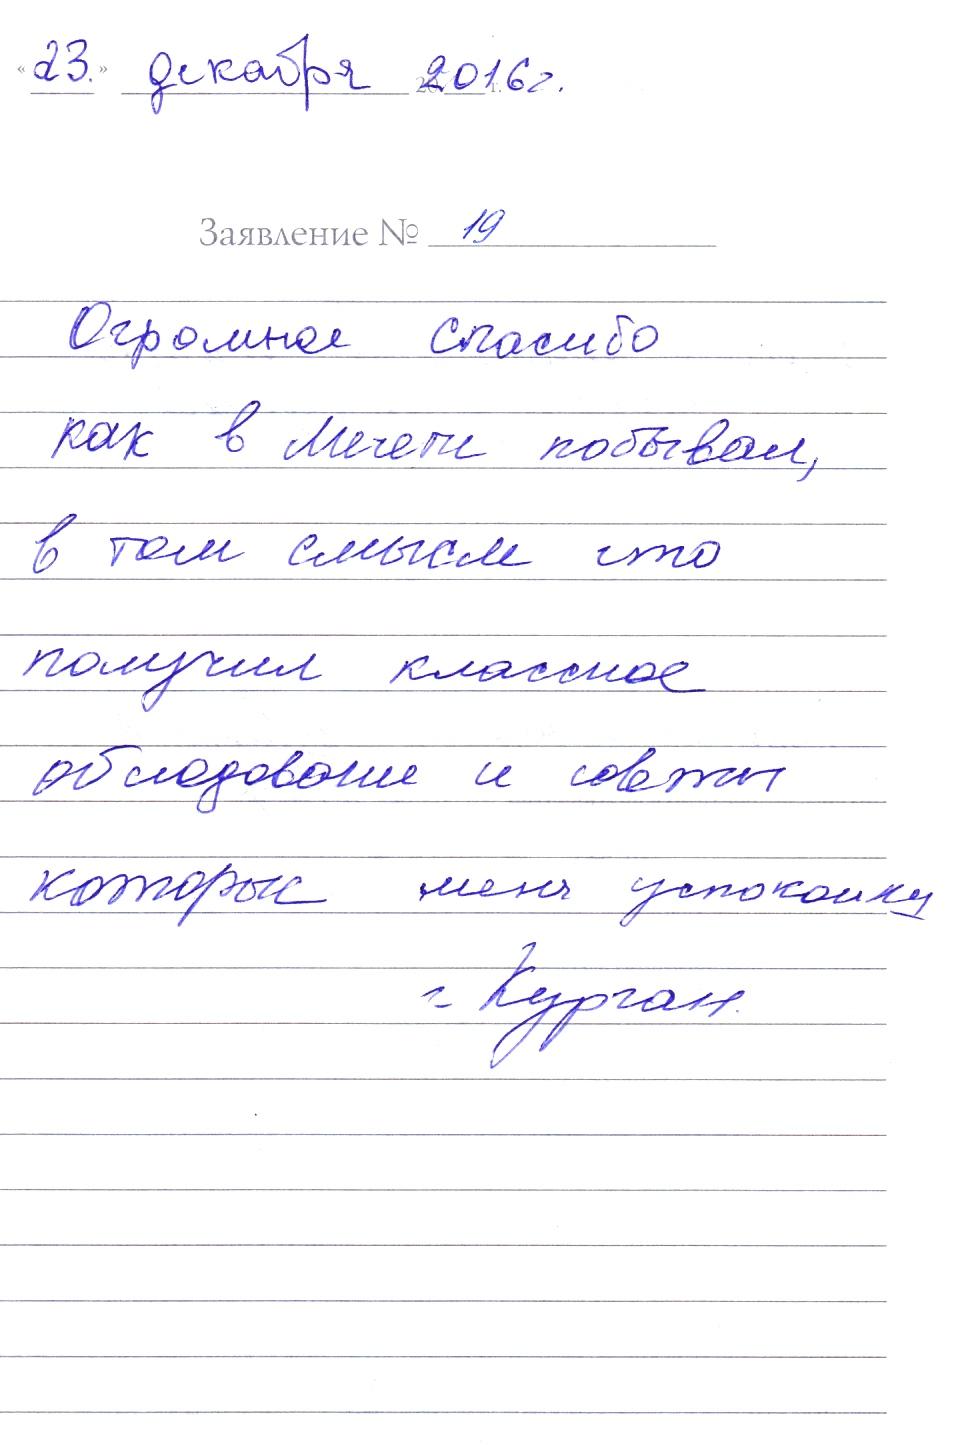 « 23. » декабря 2016 г.
Заявление № 19
Огромное спасибо
как в Мечети побывал,
в том смысле что
получил классное
обследование и советы
которые меня успокоили
г. Курган.